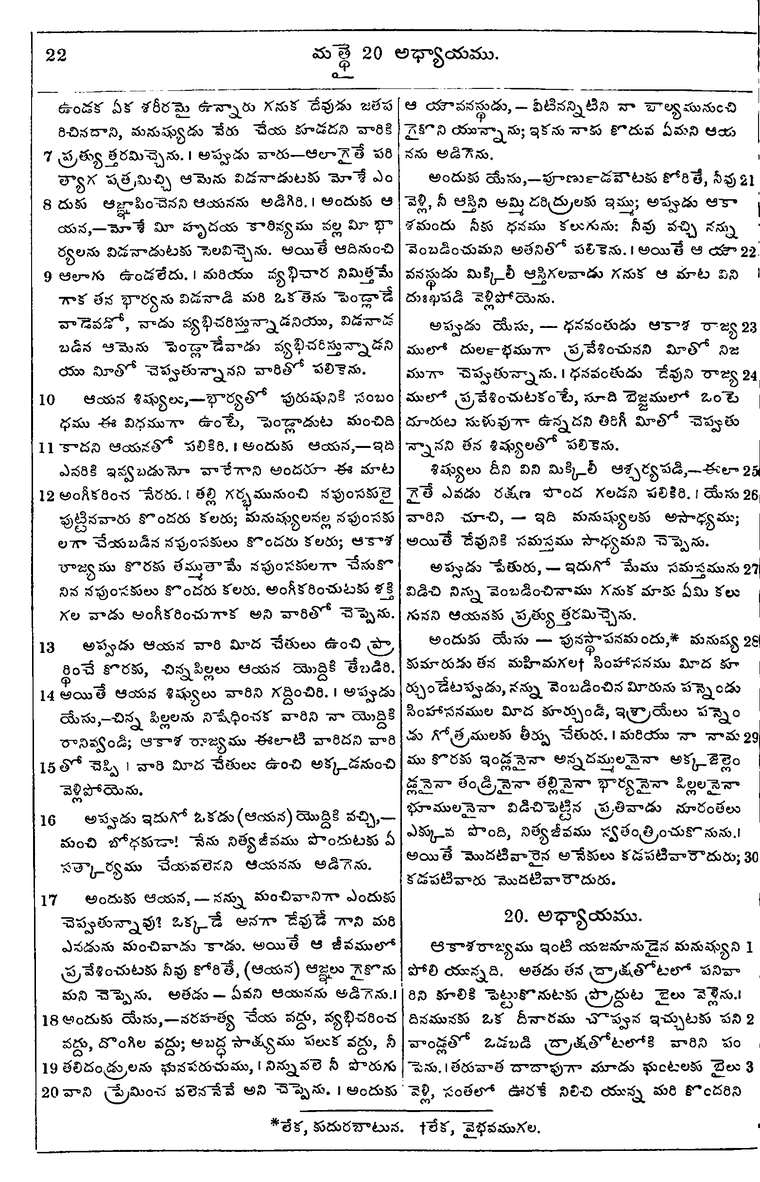 22
మత్థై 20 అధ్యాయము.
ఉండక ఏక శరీరమై ఉన్నారు గనుక దేవుడు జతప
రిచినదాని, మనుష్యుడు వేరు చేయ కూడదని వారికి
7 ప్రత్యుత్తరమిచ్చెను. । అప్పుడు వారు—ఆలాగైతే పరి
త్యాగ పత్రమిచ్చి ఆమెను విడనాడుటకు మోశే ఎం
8 దుకు ఆజ్ఞాపించెనని ఆయనను అడిగిరి. । అందుకు ఆ
యన,—మోశే మీ హృదయ కాఠిన్యము వల్ల మీ భా
ర్యలను విడనాడుటకు సెలవిచ్చెను. అయితే ఆదినుంచి
9 ఆలాగు ఉండలేదు. । మరియు వ్యభిచార నిమిత్తమే
గాక తన భార్యను విడనాడి మరి ఒకతెను పెండ్లాడే
వాడెవడో, వాడు వ్యభిచరిస్తున్నాడనియు, విడనాడ
బడిన ఆమెను పెండ్లాడేవాడు వ్యభిచరిస్తున్నాడని
యు మీతో చెప్పుతున్నానని వారితో పలికెను.
10 ఆయన శిష్యులు,—భార్యతో పురుషునికి సంబం
ధము ఈ విధముగా ఉంటే, పెండ్లాడుట మంచిది
11 కాదని ఆయనతో పలికిరి. । అందుకు ఆయన,—ఇది
ఎవరికి ఇవ్వబడునో వారేగాని అందరూ ఈ మాట
12 అంగీకరించ నేరరు. । తల్లి గర్భమునుంచి నపుంసకులై
పుట్టినవారు కొందరు కలరు; మనుష్యులవల్ల నపుంసకు
లగా చేయబడిన నపుంసకులు కొందరు కలరు; ఆకాశ
రాజ్యము కొరకు తమ్ముతామే నపుంసకులగా చేసుకొ
నిన నపుంసకులు కొందరు కలరు. అంగీకరించుటకు శక్తి
గల వాడు అంగీకరించుగాక అని వారితో చెప్పెను.
13 అప్పుడు ఆయన వారి మీద చేతులు ఉంచి ప్రా
ర్థించే కొరకు, చిన్నపిల్లలు ఆయన యొద్దికి తేబడిరి.
14 అయితే ఆయన శిష్యులు వారిని గద్దించిరి. । అప్పుడు
యేసు,—చిన్న పిల్లలను నిషేధించక వారిని నా యొద్దికి
రానివ్వండి; ఆకాశ రాజ్యము ఈలాటి వారిదని వారి
15 తో చెప్పి । వారి మీద చేతులు ఉంచి అక్కడనుంచి
వెళ్లిపోయెను.
16 అప్పుడు ఇదుగో ఒకడు (ఆయన) యొద్దికి వచ్చి,—
మంచి బోధకుడా! నేను నిత్యజీవము పొందుటకు ఏ
సత్కార్యము చేయవలెనని ఆయనను అడిగెను.
17 అందుకు ఆయన, — నన్ను మంచివానిగా ఎందుకు
చెప్పుతున్నావు? ఒక్కడే అనగా దేవుడే గాని మరి
ఎవడును మంచివాడు కాడు. అయితే ఆ జీవములో
ప్రవేశించుటకు నీవు కోరితే, (ఆయన) ఆజ్ఞలు గైకొను
మని చెప్పెను. అతడు — ఏవని ఆయనను అడిగెను.।
18 అందుకు యేసు,—నరహత్య చేయ వద్దు, వ్యభిచరించ
వద్దు, దొంగిల వద్దు; అబద్ధ సాక్ష్యము పలుక వద్దు, నీ
19 తలిదండ్రులను ఘనపరుచుము, । నిన్నువలె నీ పొరుగు
20 వాని ప్రేమించ వలెననేవే అని చెప్పెను. । అందుకు
ఆ యౌవనస్థుడు,— వీటినన్నిటిని నా బాల్యమునుంచి
గైకొని యున్నాను; ఇకను నాకు కొదువ ఏమని ఆయ
నను అడిగెను.
అందుకు యేసు,—పూణు౯డవౌటకు కోరితే, నీవు 21
వెళ్లి, నీ ఆస్తిని అమ్మి దరిద్రులకు ఇమ్ము; అప్పుడు ఆకా
శమందు నీకు ధనము కలుగును: నీవు వచ్చి నన్ను
వెంబడించుమని అతనితో పలికెను. । అయితే ఆ యౌ 22
వనస్థుడు మిక్కిలీ ఆస్తిగలవాడు గనుక ఆ మాట విని
దుఃఖపడి వెళ్లిపోయెను.
అప్పుడు యేసు, — ధనవంతుడు ఆకాశ రాజ్య 23
ములో దుల౯భముగా ప్రవేశించునని మీతో నిజ
ముగా చెప్పుతున్నాను. । ధనవంతుడు దేవుని రాజ్య 24
ములో ప్రవేశించుటకంటే, సూది బెజ్జములో ఒంటె
దూరుట సుళువుగా ఉన్నదని తిరిగీ మీతో చెప్పుతు
న్నానని తన శిష్యులతో పలికెను.
శిష్యులు దీని విని మిక్కిలీ ఆశ్చర్యపడి,—ఈలా 25
గైతే ఎవడు రక్షణ పొంద గలడని పలికిరి. । యేసు 26
వారిని చూచి, — ఇది మనుష్యులకు అసాధ్యము;
అయితే దేవునికి సమస్తము సాధ్యమని చెప్పెను.
అప్పుడు పేతురు, — ఇదుగో మేము సమస్తమును 27
విడిచి నిన్ను వెంబడించినాము గనుక మాకు ఏమి కలు
గునని ఆయనకు ప్రత్యుత్తరమిచ్చెను.
అందుకు యేసు — పునస్థాపనమందు,* మనుష్య 28
కుమారుడు తన మహిమగల† సింహాసనము మీద కూ
ర్చుండేటప్పుడు, నన్ను వెంబడించిన మీరును పన్నెండు
సింహాసనముల మీద కూర్చుండి, ఇశ్రాయేలు పన్నెం
డు గోత్రములకు తీర్పు చేతురు. । మరియు నా నామ 29
ము కొరకు ఇండ్లనైనా అన్నదమ్ములనైనా అక్కజెల్లెం
డ్లనైనా తండ్రినైనా తల్లినైనా భార్యనైనా పిల్లలనైనా
భూములనైనా విడిచిపెట్టిన ప్రతివాడు నూరంతలు
ఎక్కువ పొంది, నిత్యజీవము స్వతంత్రించుకొనును.।
అయితే మొదటివారైన అనేకులు కడపటివారౌదురు; 30
కడపటివారు మొదటివారౌదురు.
20. అధ్యాయము.
ఆకాశరాజ్యము ఇంటి యజమానుడైన మనుష్యుని 1
పోలి యున్నది. అతడు తన ద్రాక్షతోటలో పనివా
రిని కూలికి పెట్టుకొనుటకు ప్రొద్దుట బైలు వెళ్లెను.।
దినమునకు ఒక దీనారము చొప్పున ఇచ్చుటకు పని 2
వాండ్లతో ఒడబడి ద్రాక్షతోటలోకి వారిని పం
పెను. । తరువాత దాదాపుగా మూడు ఘంటలకు బైలు 3
వెళ్లి, సంతలో ఊరకే నిలిచి యున్న మరి కొందరిని
*లేక, కుదురబాటున. †లేక, వైభవముగల.